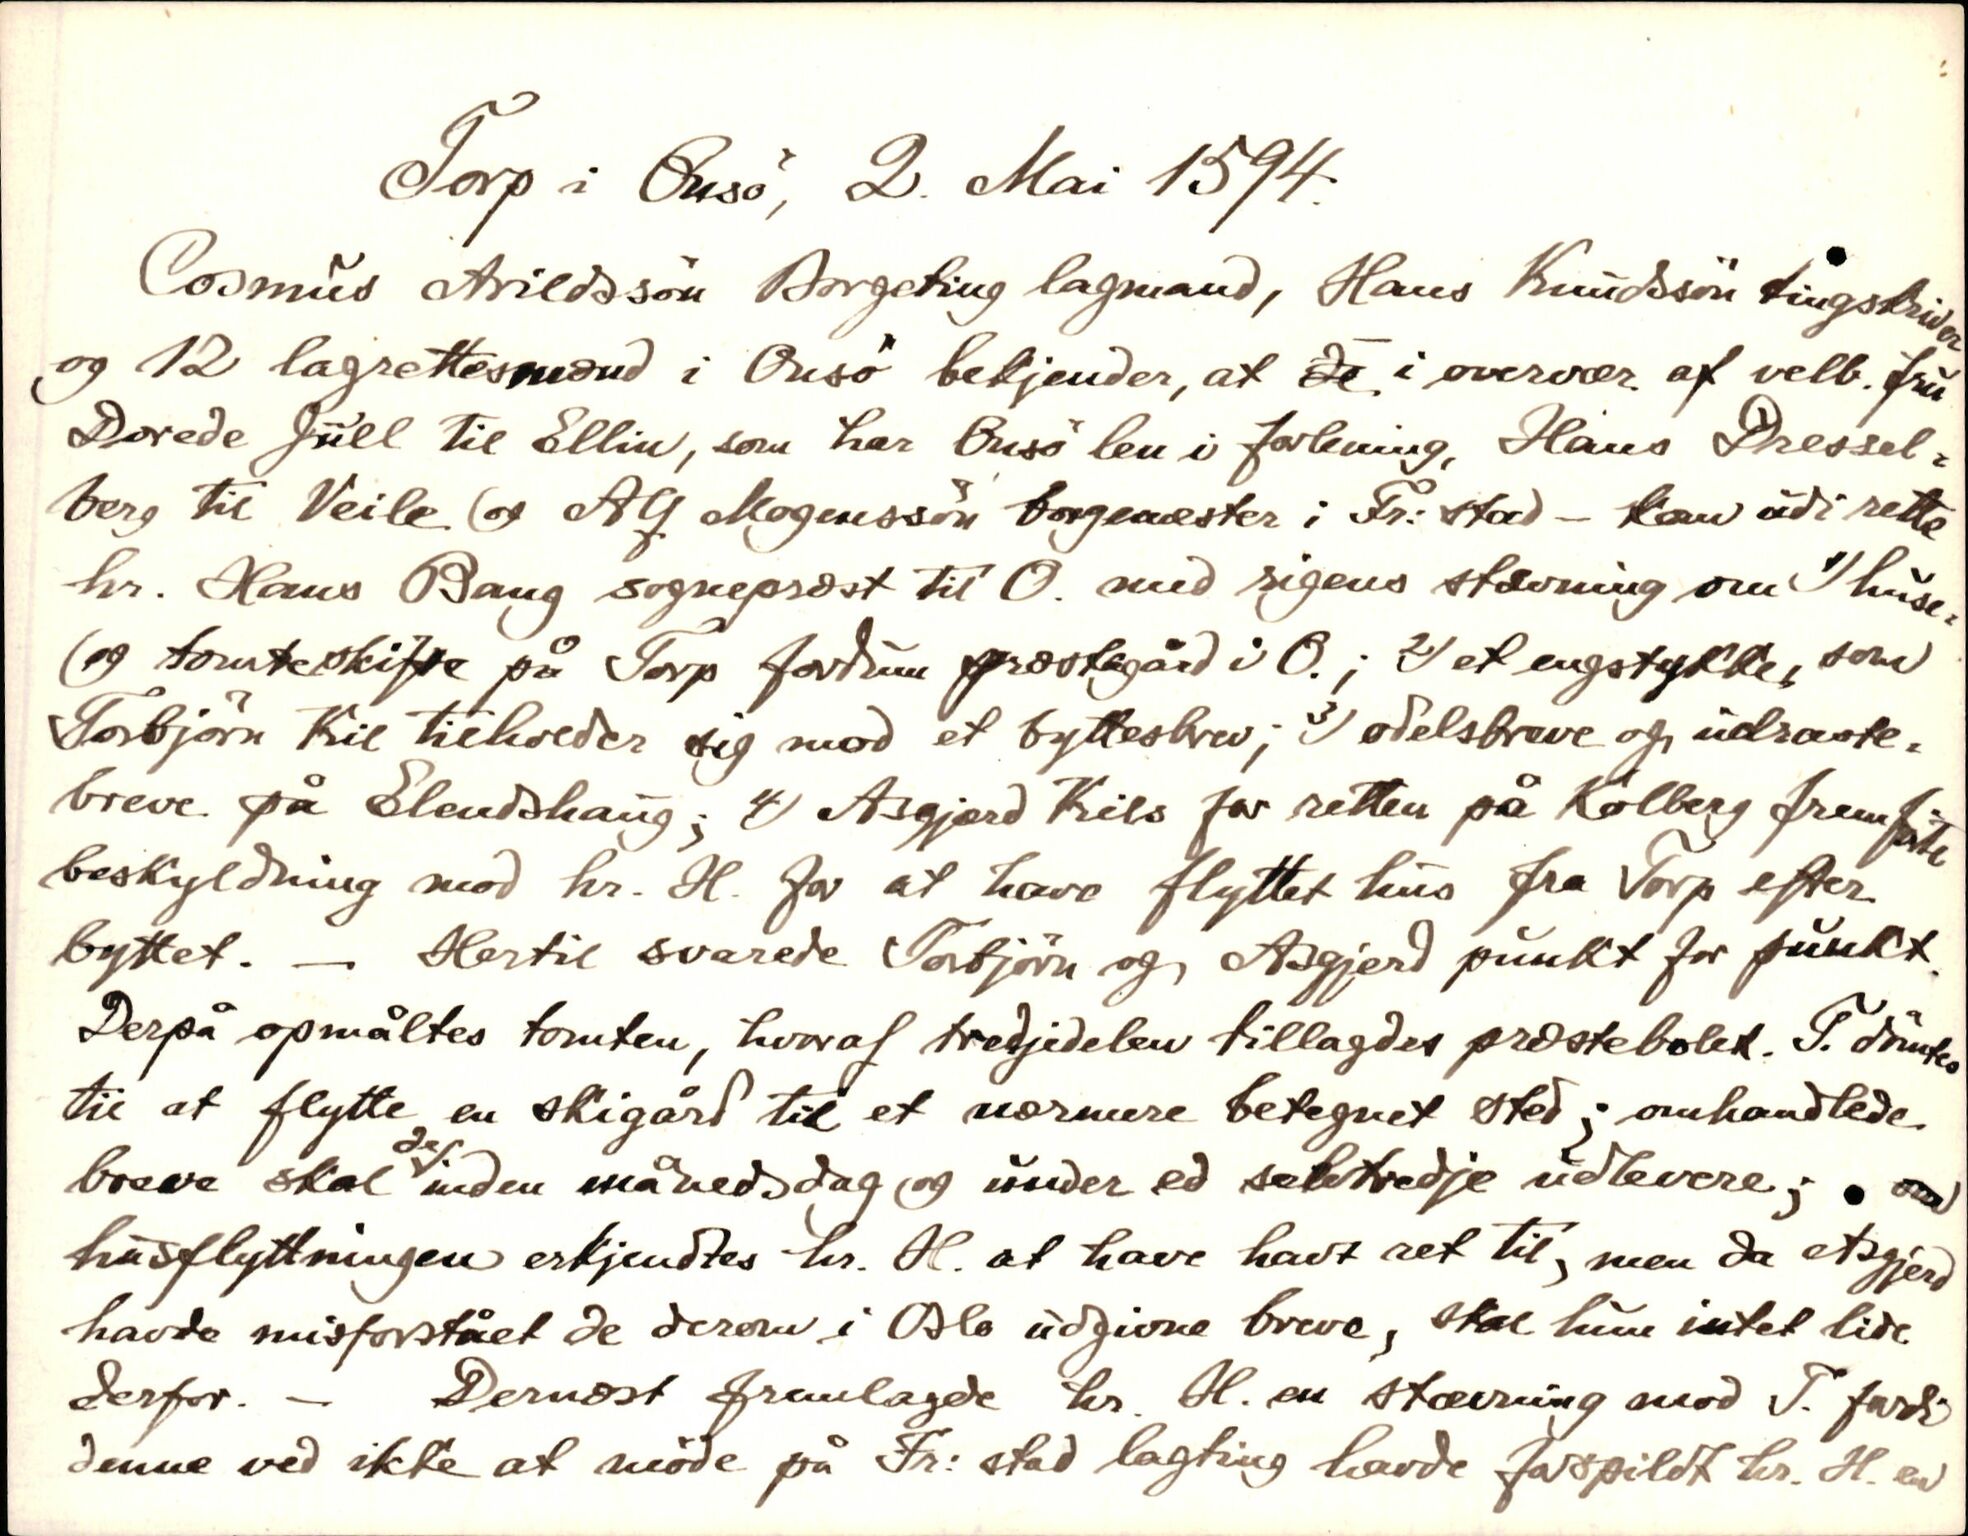 Torp i Onsö, 2. Mai 1594.
Cosmus Arildssön Borgeting lagmand, Hans Knudssön tingskriver
og 12 lagrettesmænd i Onsö bekjender, at de i overvær af velb. fru
Dorede Jull til Ellin, som har Onsö len i forlening, Hans Dressel-
berg til Veile og Alf Mogenssön borgemester i Fr:stad – kom udi rette
hr. Hans Bang sogneprest til O. med rigens stævning om 1) huse-
og tomteskifte på Torp fordum præstegård i O.; 2) et engstykke, som
Torbjörn Kil tilholder sig mod et byttesbrev; 3) odelsbreve og udraste-
breve på Elendshaug; 4) Asgjerd Kils for retten på Kolberg fremförte
beskyldning mod hr. H. for at have flyttet hus fra Torp efter
byttet. — Hertil svarede Torbjörn og Asgjerd punkt for punkt.
Derpå opmåltes tomten, hvoraf tredjedelen tillagdes præstebolet. T. dömtes
til at flytte en skigård til et nærmere betegnet sted; omhandlede
breve skal de inden månedsdag og under ed selvtredje udlevere;
husflyttningen erkjendtes hr. H. at have havt ret til, men da Asgjerd
havde misforstået de derom i Oslo udgivne breve, skal hun intet lide
derfor. — Dernæst fremlagde hr. H. en stævning mod T. fordi
denne ved ikke at möde på Fr:stad lagting havde forspildt hr. H. en